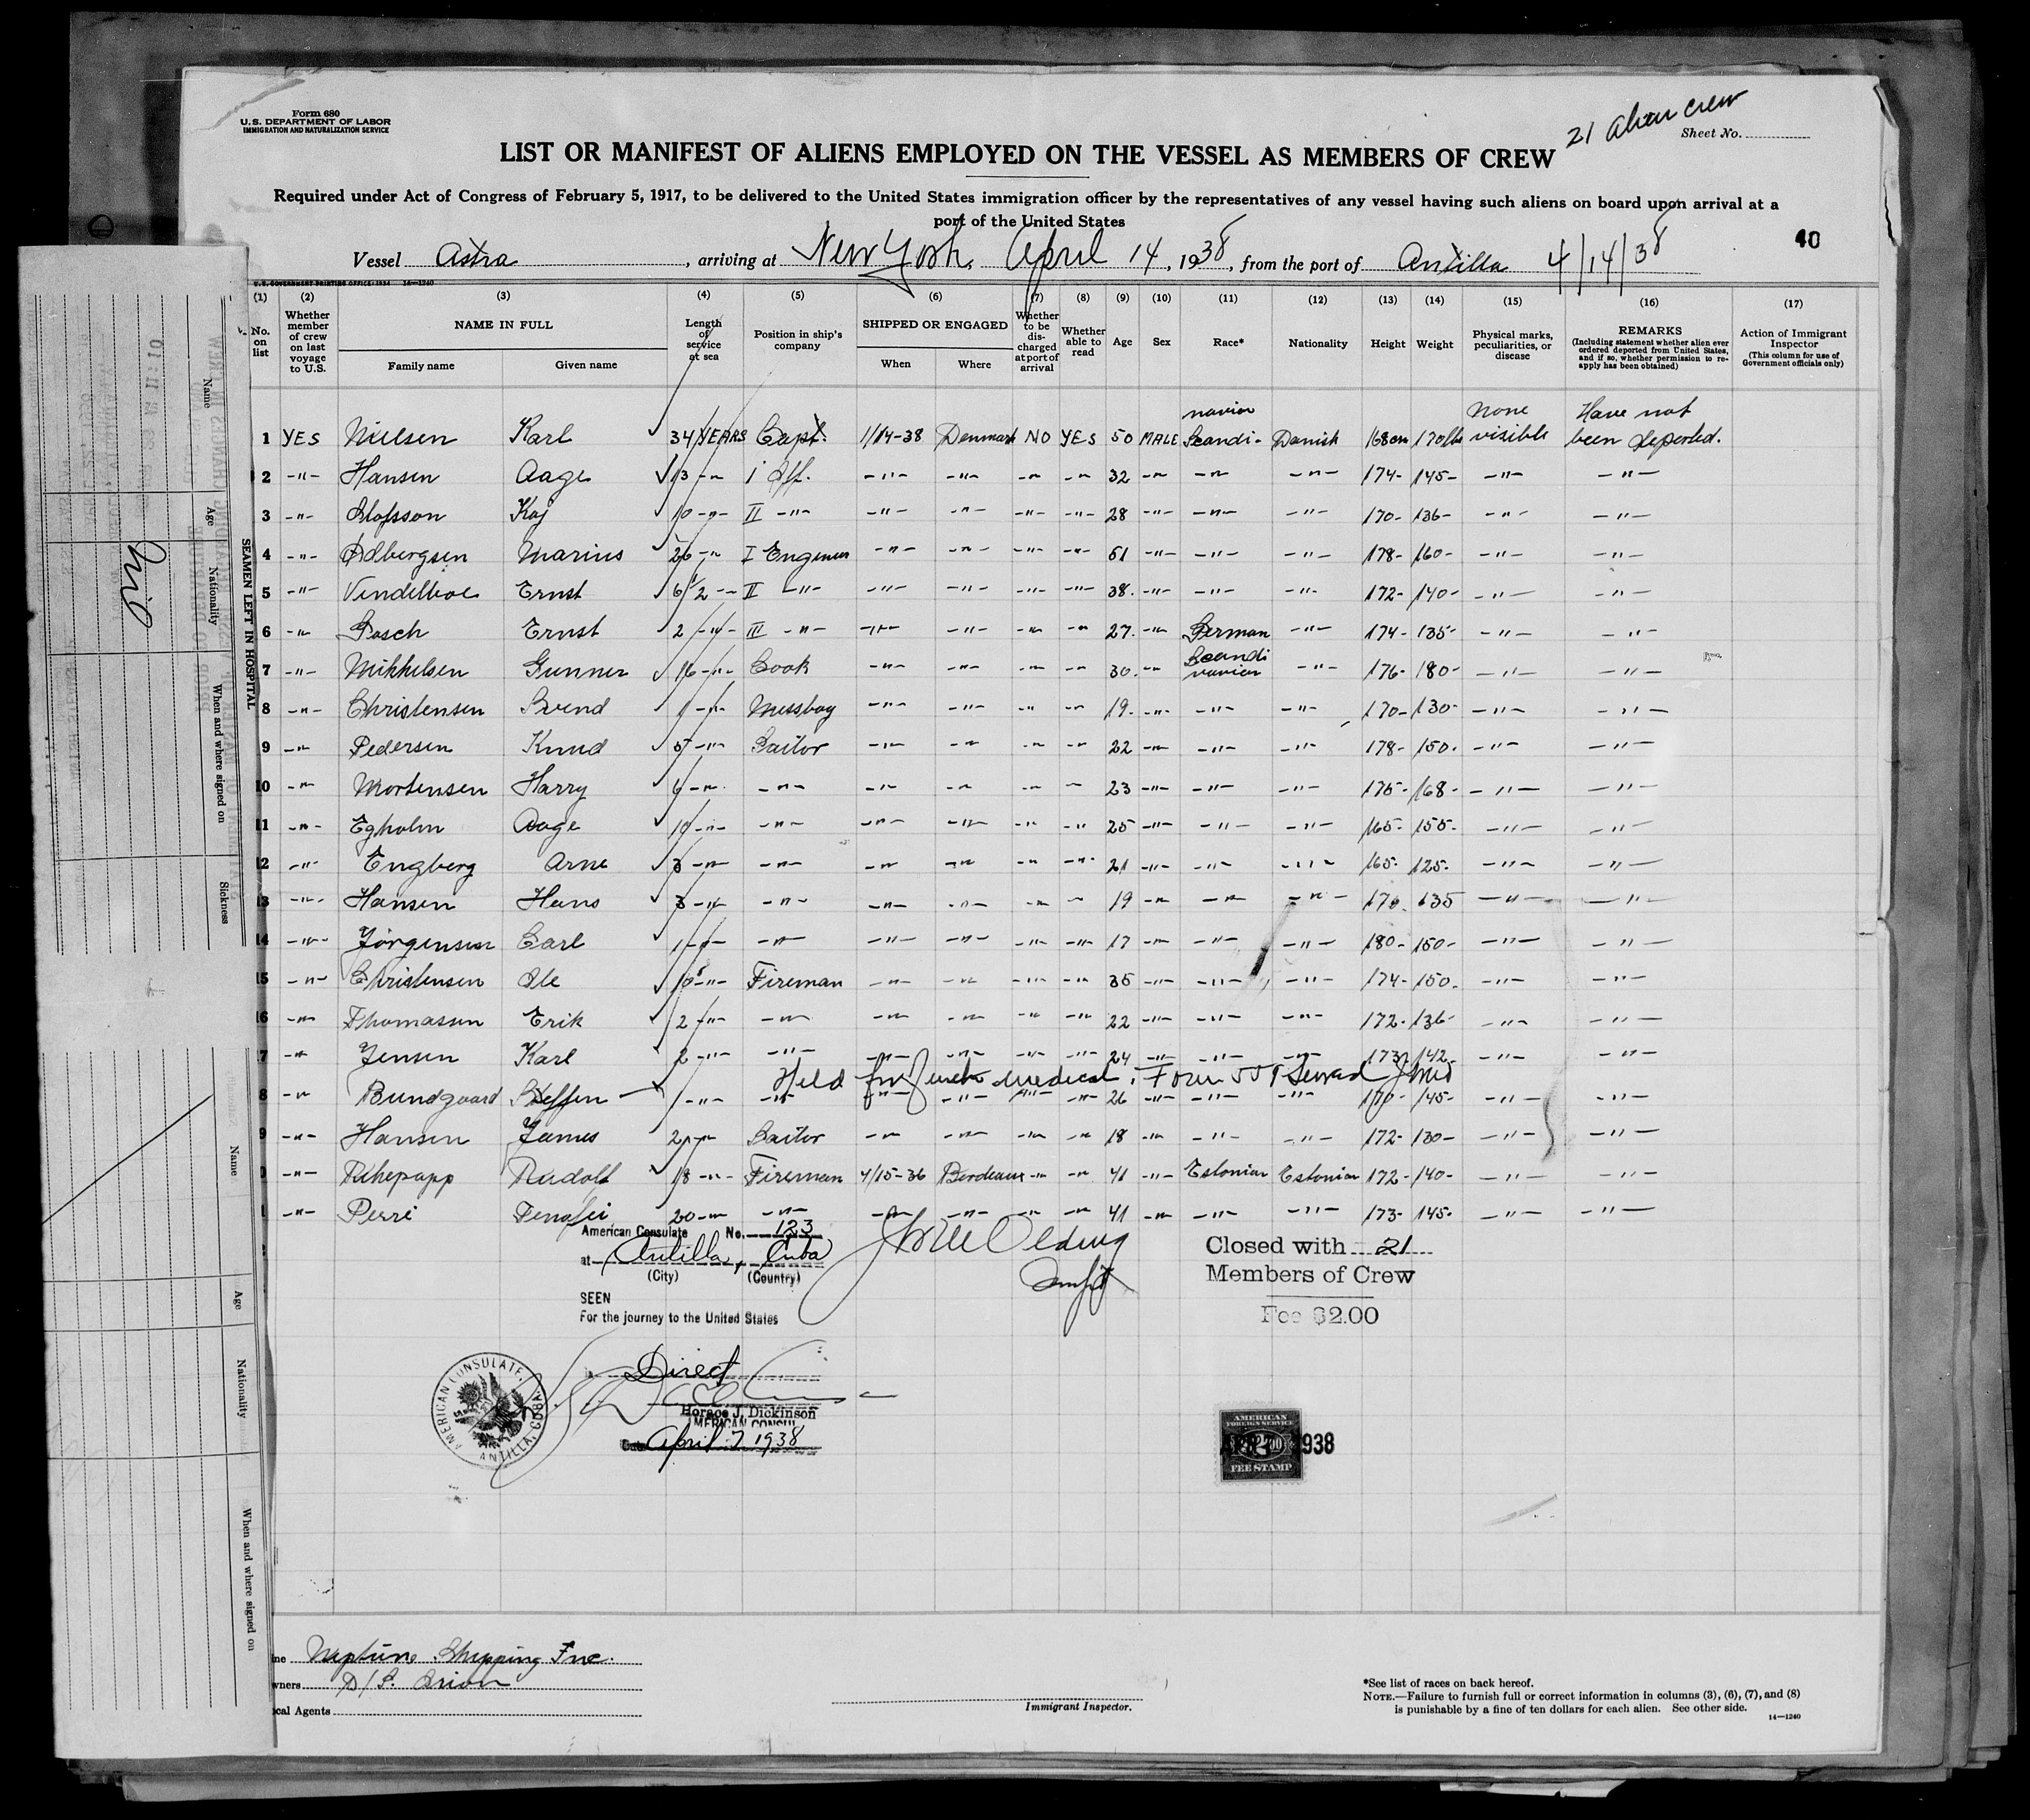 Form 680
U.S. DEPARTMENT OF LABOR
IMMIGRATION AND NATURALIZATION SERVICE
21 alien crew
Sheet No.
LIST OR MANIFEST OF ALIENS EMPLOYED ON THE VESSEL AS MEMBERS OF CREW
Required under Act of Congress of February 5, 1917, to be delivered to the United States immigration officer by the representatives of any vessel having such aliens on board upon arrival at a
port of the United States
40
Vessel Astra, arriving at New York, April 14, 1938, from the port of Antilla 4/14/38
U.S. GOVERNMENT PRINTING OFFICE: 1934 14—1240
(1) (2) (3) (4) (5) (6) (7) (8) (9) (10) (11) (12) (13) (14) (15) (16) (17)
No. on list
Whether member of crew on last voyage to U.S.
NAME IN FULL
Family name Given name
Length of service at sea
Position in ship's company
SHIPPED OR ENGAGED
When Where
Whether to be discharged at port of arrival
Whether able to read
Age
Sex
Race*
Nationality
Height
Weight
Physical marks, peculiarities, or disease
REMARKS
(Including statement whether alien ever ordered deported from United States, and if so, whether permission to reapply has been obtained)
Action of Immigrant Inspector
(This column for use of Government officials only)
1 YES Nielsen Karl 34 YEARS Capt. 1/14-38 Denmark NO YES 50 MALE Scandinavian Danish 168cm 170lbs None visible Have not been deported.
2 -"- Hansen Aage 13 -"- I Off. -"- -"- -"- -"- 32 -"- -"- -"- 174- 145- -"- -"-
3 -"- Olofsson Kaj 10 -"- II -"- -"- -"- -"- -"- 28 -"- -"- -"- 170- 136- -"- -"-
4 -"- Ødbergsen Marius 26 -"- I Engineer -"- -"- -"- -"- 51 -"- -"- -"- 178- 160- -"- -"-
5 -"- Vendelboe Ernst 6 1/2 -"- II -"- -"- -"- -"- -"- 38 -"- -"- -"- 172- 140- -"- -"-
6 -"- Gosch Ernst 2 -"- III -"- -"- -"- -"- -"- 27 -"- German -"- 174- 135- -"- -"-
7 -"- Mikkelsen Gunner 16 -"- Cook -"- -"- -"- -"- 30 -"- Scandinavian -"- 176- 180- -"- -"-
8 -"- Christensen Svend 1 -"- Messboy -"- -"- -"- -"- 19 -"- -"- -"- 170- 130- -"- -"-
9 -"- Pedersen Knud 5 -"- Sailor -"- -"- -"- -"- 22 -"- -"- -"- 178- 150- -"- -"-
10 -"- Mortensen Harry 6 -"- -"- -"- -"- -"- -"- 23 -"- -"- -"- 175- 168- -"- -"-
11 -"- Egholm Aage 10 -"- -"- -"- -"- -"- -"- 25 -"- -"- -"- 165- 155- -"- -"-
12 -"- Engberg Arne 3 -"- -"- -"- -"- -"- -"- 21 -"- -"- -"- 165- 125- -"- -"-
13 -"- Hansen Hans 3 -"- -"- -"- -"- -"- -"- 19 -"- -"- -"- 170- 135 -"- -"-
14 -"- Jørgensen Carl 1 -"- -"- -"- -"- -"- -"- 17 -"- -"- -"- 180- 150- -"- -"-
15 -"- Christensen Ole 10 -"- Fireman -"- -"- -"- -"- 35 -"- -"- -"- 174- 150- -"- -"-
16 -"- Thomassen Erik 2 -"- -"- -"- -"- -"- -"- 22 -"- -"- -"- 172- 136- -"- -"-
7 -"- Jensen Karl 2 -"- -"- -"- -"- -"- -"- 24 -"- -"- -"- 173- 142- -"- -"-
Held for medical. Form 551 Served
8 -"- Bundgaard Steffen 1 -"- -"- -"- -"- -"- -"- 26 -"- -"- -"- 170- 145- -"- -"-
9 -"- Hansen James 2 -"- Sailor -"- -"- -"- -"- 18 -"- -"- -"- 172- 130- -"- -"-
-"- Rihepapp Rudolf 18 -"- Fireman 4/15-36 Bordeaux -"- -"- 41 -"- Estonian Estonian 172- 140- -"- -"-
-"- Perri 20 -"- -"- -"- -"- -"- -"- 41 -"- -"- -"- 173- 145- -"- -"-
American Consulate No. 123
at Antilla, Cuba
(City) (Country)
SEEN
For the journey to the United States
Direct
Horace J. Dickinson
AMERICAN CONSUL
Date April 7 1938
AMERICAN CONSULATE, ANTILLA, CUBA
Closed with 21
Members of Crew
Fee $2.00
AMERICAN
FOREIGN SERVICE
FEE STAMP
1938
SEAMEN LEFT IN HOSPITAL
Name
Age
Nationality
When and where signed on
Sickness
Nil
Name
Age
Nationality
When and where signed on
ne Neptune Shipping Inc.
wners D/S. Orion
cal Agents
Immigrant Inspector.
*See list of races on back hereof.
NOTE.—Failure to furnish full or correct information in columns (3), (6), (7), and (8)
is punishable by a fine of ten dollars for each alien. See other side.
14—1240